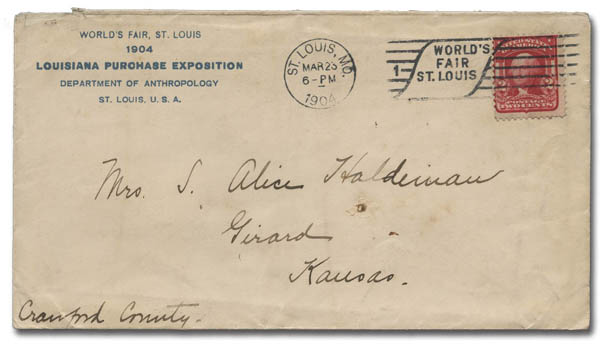 WORLD'S FAIR, ST. LOUIS
1904
LOUISIANA PURCHASE EXPOSITION
DEPARTMENT OF ANTHROPOLOGY
ST. LOUIS, U.S.A.
ST. LOUIS, MO.
MAR 23
6-PM
1904
1
WORLD'S
FAIR
ST. LOUIS
POSTAGE
TWO CENTS
Mrs. S. Alice Haldeman
Girard
Kansas.
Crawford County.